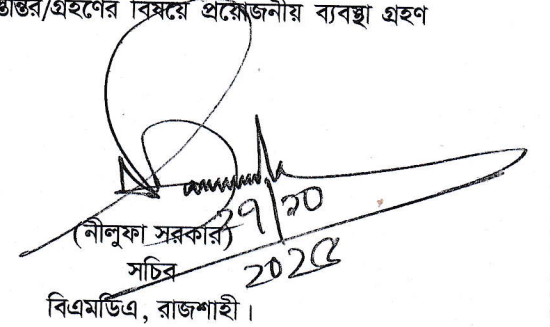 ান্তর/গ্রহণের বিষয়ে প্রয়োজনীয় ব্যবস্থা গ্রহণ
২৭/১০
(নীলুফা সরকার)
২০২৫
সচিব
বিএমডিএ, রাজশাহী।